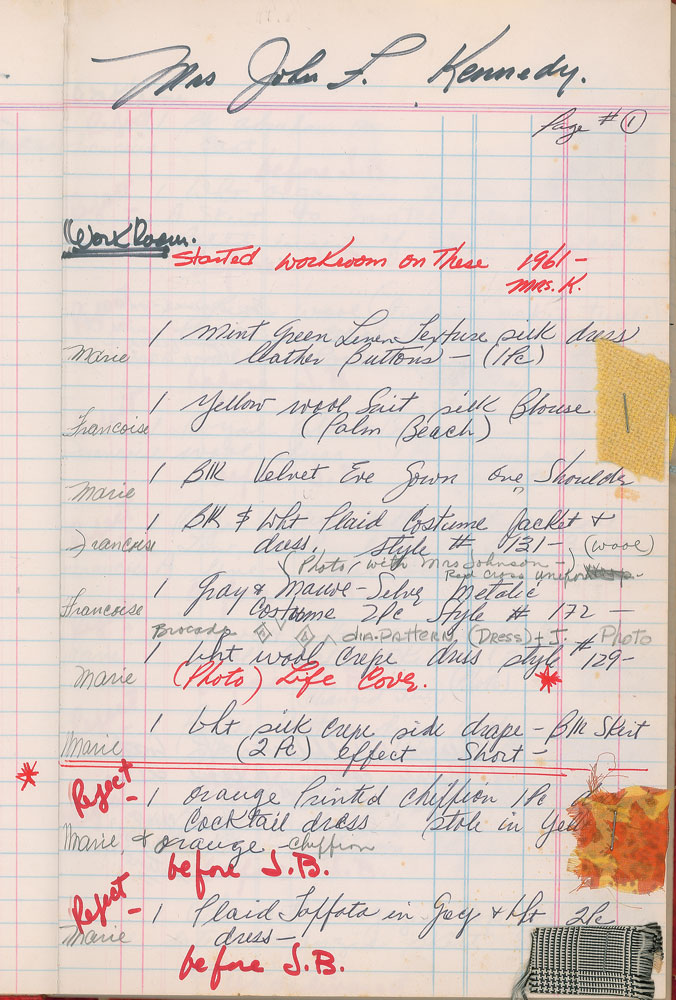 Mrs John F. Kennedy.
Page # 1
"WorkRoom.
Started workroom on These 1961-
Mrs. K.
1 Mint Green Linen Texture silk dress
Marie leather Buttons - (1Pc)
1 Yellow wool Suit silk Blouse
Francoise (Palm Beach)
1 Blk Velvet Eve Gown one Shoulder
Marie
1 Blk & Wht Plaid Costume Jacket +
Francoise dress, style # 131- (wool)
(Photo, with Mrs Johnson-
Red Cross Uniforms
1 Gray & Mauve-Silver Metalic
Francoise Costume 2Pc Style # 172 -
Brocade dia. Pattern, (Dress) + J. Photo
1 Wht wool crepe dress style #129-
Marie (Photo) Life Cover. *
1 Wht silk crepe side drape - Blk Skirt
Marie (2 Pc) effect Short -
*
Reject - 1 orange Printed chiffron 1Pc
Cocktail dress stole in Yell
Marie, & orange - chiffron
before J.B.
Reject - 1 Plaid Taffata in Grey & Wht 2Pc
Marie dress -
before J.B.